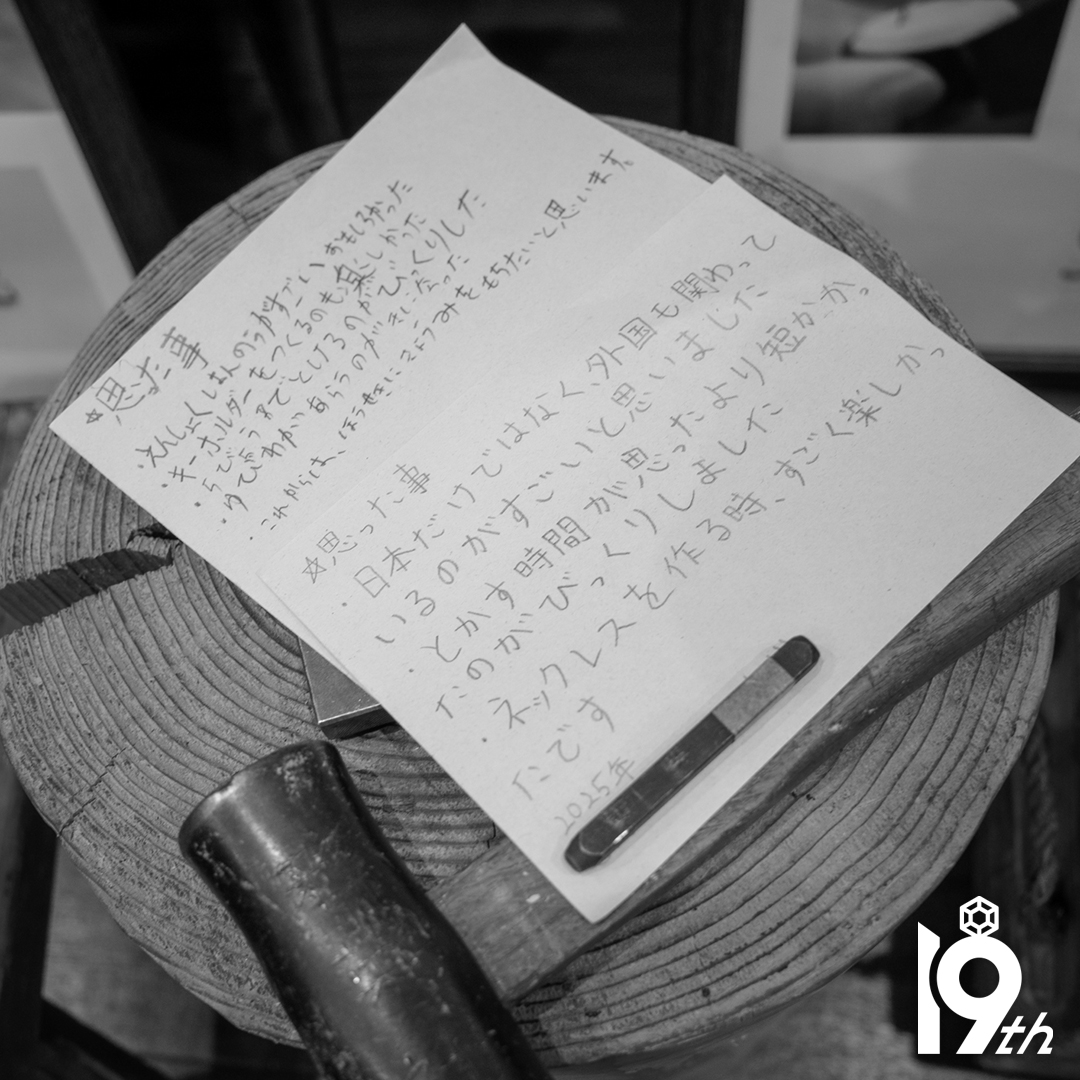 ☆思った事
・えんしょくしはんのうがすごいおもしろかった
・キーホルダーをつくるのも楽しかった
・らでぃうすまでとけるのがびっくりした
・ゆびわがあらうのがきれいだった
・これからは、ほうせきにきょうみをもちたいと思います。
☆思った事
・日本だけではなく、外国も関わって
いるのがすごいと思いました
・とかす時間が思ったより短かかっ
たのがびっくりしました
・ネックレスを作る時、すごく楽しかっ
たです
2025年
19th